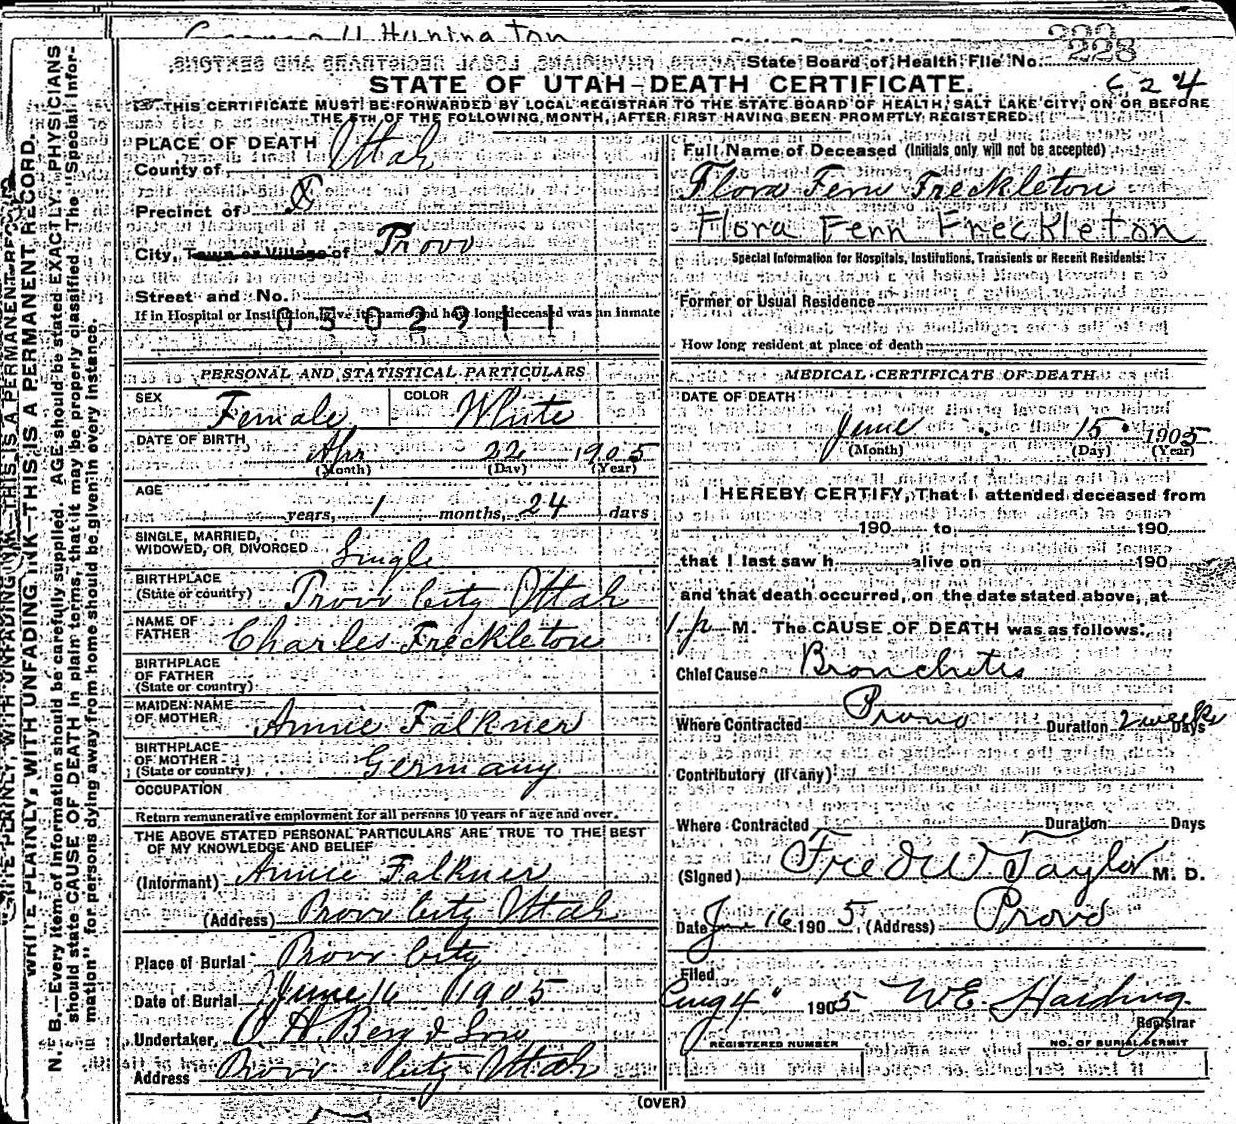 State Board of Health File No. 228
624
STATE OF UTAH—DEATH CERTIFICATE.
THIS CERTIFICATE MUST BE FORWARDED BY LOCAL REGISTRAR TO THE STATE BOARD OF HEALTH, SALT LAKE CITY, ON OR BEFORE
THE 5TH OF THE FOLLOWING MONTH, AFTER FIRST HAVING BEEN PROMPTLY REGISTERED.
PLACE OF DEATH
County of Utah
Precinct of X
City, Town or Village of Provo
Street and No.
If in Hospital or Institution, give its name and how long deceased was an inmate
0502911
Full Name of Deceased (Initials only will not be accepted)
Flora Fern Freckleton
Flora Fern Freckleton
Special Information for Hospitals, Institutions, Transients or Recent Residents:
Former or Usual Residence
How long resident at place of death
PERSONAL AND STATISTICAL PARTICULARS
SEX Female COLOR White
DATE OF BIRTH Apr 22 1905
(Month) (Day) (Year)
AGE
years, 1 months, 24 days
SINGLE, MARRIED,
WIDOWED, OR DIVORCED Single
BIRTHPLACE
(State or country) Provo City Utah
NAME OF
FATHER Charles Freckleton
BIRTHPLACE
OF FATHER
(State or country)
MAIDEN NAME
OF MOTHER Annie Falkner
BIRTHPLACE
OF MOTHER
(State or country) Germany
OCCUPATION
Return remunerative employment for all persons 10 years of age and over.
THE ABOVE STATED PERSONAL PARTICULARS ARE TRUE TO THE BEST
OF MY KNOWLEDGE AND BELIEF
(Informant) Annie Falkner
(Address) Provo City Utah
Place of Burial Provo City
Date of Burial June 16 1905
Undertaker, O H Berg & Son
Address Provo City Utah
MEDICAL CERTIFICATE OF DEATH
DATE OF DEATH
June 15 1905
(Month) (Day) (Year)
I HEREBY CERTIFY, That I attended deceased from
190 to 190
that I last saw h alive on 190
and that death occurred, on the date stated above, at
1 p M. The CAUSE OF DEATH was as follows:
Chief Cause Bronchitis
Where Contracted Provo Duration 2 weeks Days
Contributory (if any)
Where Contracted Duration Days
(Signed) Fred W. Taylor M. D.
Date June 16 1905 (Address) Provo
Filed
Aug 4" 1905 W E. Harding
Registrar
REGISTERED NUMBER NO. OF BURIAL PERMIT
(OVER)
WRITE PLAINLY, WITH UNFADING INK—THIS IS A PERMANENT RECORD.
N. B.—Every item of information should be carefully supplied. AGE should be stated EXACTLY. PHYSICIANS
should state CAUSE OF DEATH in plain terms, that it may be properly classified. The "Special Infor-
mation" for persons dying away from home should be given in every instance.